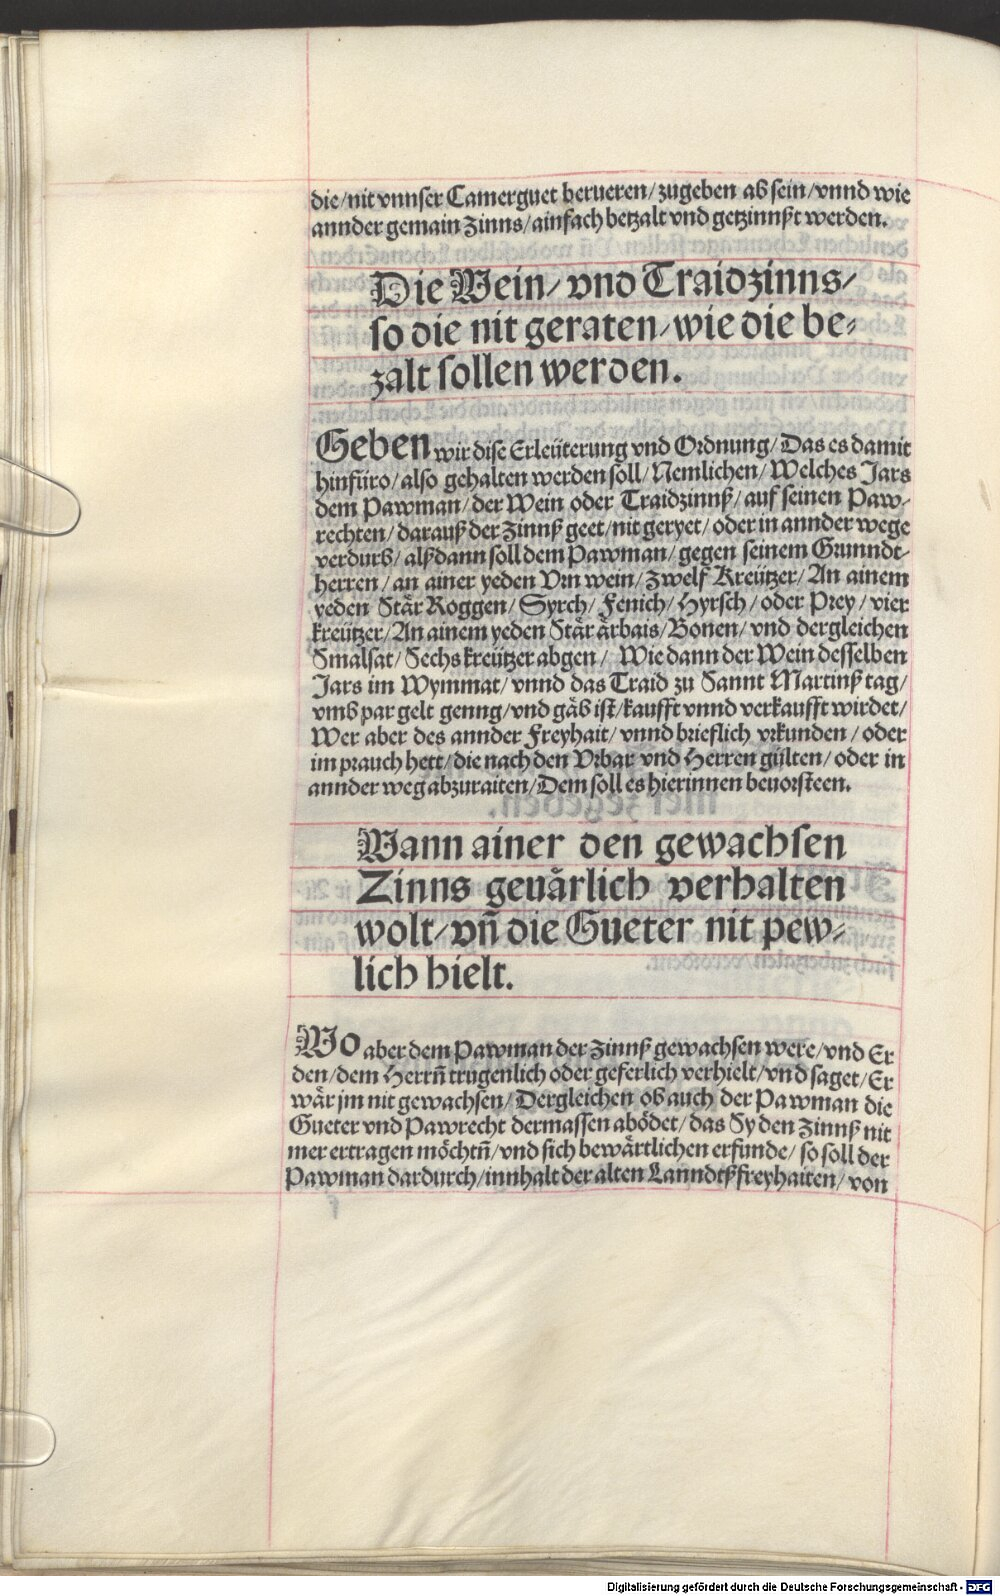 die/nit vnnser Camerguet berueren/zugeben ab sein/vnnd wie
annder gemain Zinns/ainfach betzalt vnd getzinnßt werden.
Die Wein/vnd Traidzinns/
so die nit geraten/wie die be-
zalt sollen werden.
Geben wir dise Erleüterung vnd Ordnung/Das es damit
hinfüro/also gehalten werden soll/Nemlichen/Welches Jars
dem Pawman/der Wein oder Traidzinnß/auf seinen Paw-
rechten/darauß der Zinnß geet/nit geryet/oder in annder wege
verdurb/alßdann soll dem Pawman/gegen seinem Grunndt-
herren/an ainer yeden Vrn wein/Zwelf Kreützer/An ainem
yeden Stär Roggen/Syrch/Fenich/Hyrsch/oder Prey/vier
kreützer/An ainem yeden Stär ärbais/Bonen/vnd dergleichen
Smalsat/Sechs kreützer abgen/Wie dann der Wein desselben
Jars im Wymmat/vnnd das Traid zu Sannt Martinß tag/
vmb par gelt genng/vnd gäb ist/kaufft vnnd verkaufft wirdet/
Wer aber des annder Freyhait/vnnd brieflich vrkunden/oder
im prauch hett/die nach den Vrbar vnd Herren gülten/oder in
annder weg abzuraiten/Dem soll es hierinnen beuorsteen.
Wann ainer den gewachsen
Zinns geuärlich verhalten
wolt/vñ die Gueter nit pew-
lich hielt.
Wo aber dem Pawman der Zinnß gewachsen were/vnd Er
den/dem Herrñ trugenlich oder geferlich verhielt/vnd saget/Er
wär jm nit gewachsen/Dergleichen ob auch der Pawman die
Gueter vnd Pawrecht dermassen abödet/das Sy den Zinnß nit
mer ertragen möchtñ/vnd sich bewärtlichen erfunde/so soll der
Pawman dardurch/innhalt der alten Lanndtßfreyhaiten/von
Digitalisierung gefördert durch die Deutsche Forschungsgemeinschaft - DFG